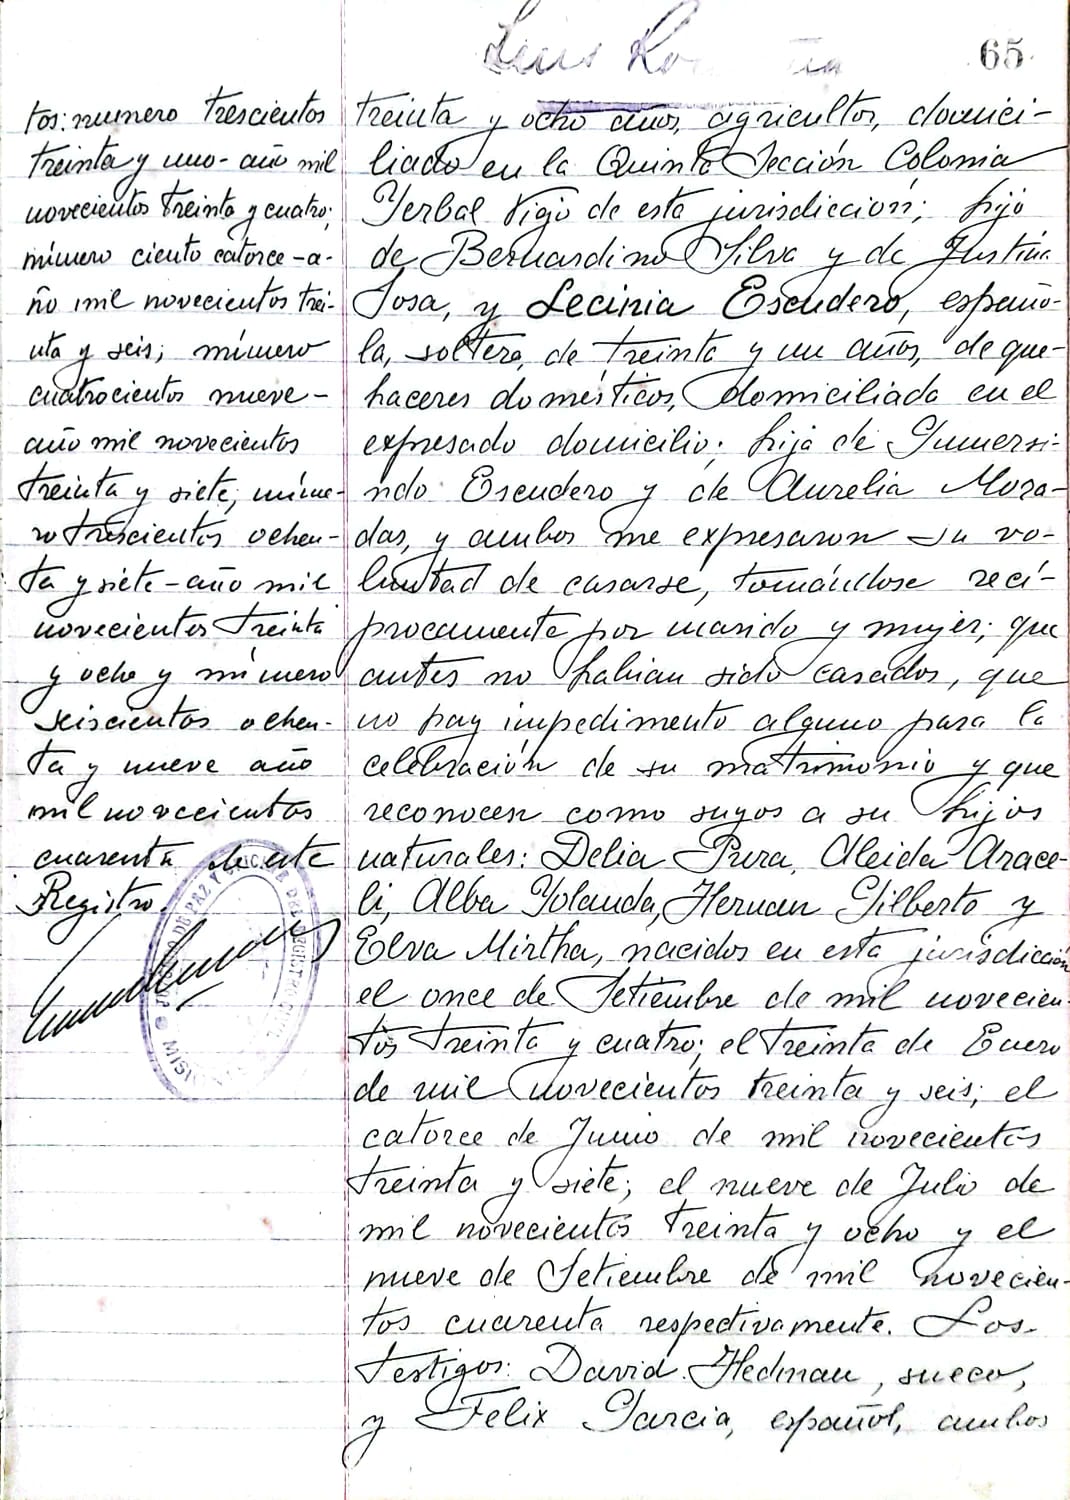 Luis Ro
65
tos: numero trescientos
treinta y uno- año mil
novecientos treinta y cuatro;
número ciento catorce -a-
ño mil novecientos trei-
nta y seis; número
cuatrocientos nueve-
año mil novecientos
treinta y siete; núme-
ro trescientos ochen-
ta y siete - año mil
novecientos treinta
y ocho y número
seiscientos ochen-
ta y nueve año
mil novecientos
cuarenta de este
Registro.
treinta y ocho años, agricultor, domici-
liado en la Quinta Sección Colonia
Yerbal Viejo de esta jurisdicción; hijo
de Bernardino Silva y de Justina
Sosa, y Lecinia Escudero, españo-
la, soltera, de treinta y un años, de que-
haceres domésticos, domiciliada en el
expresado domicilio; hija de Gumersi-
ndo Escudero y de Aurelia Mora-
das, y ambos me expresaron su vo-
luntad de casarse, tomándose recí-
procamente por marido y mujer; que
antes no habian sido casados, que
no hay impedimento alguno para la
celebración de su matrimonio y que
reconocen como suyos a su hijos
naturales: Delia Pura, Aleida Arace-
li, Alba Yolanda, Hernan Gilberto y
Elva Mirtha, nacidos en esta jurisdicción
el once de Setiembre de mil novecien-
tos treinta y cuatro; el treinta de Enero
de mil novecientos treinta y seis; el
catorce de Junio de mil novecientos
treinta y siete; el nueve de Julio de
mil novecientos treinta y ocho y el
nueve de Setiembre de mil novecien-
tos cuarenta respectivamente. Los-
testigos: David Hedman, sueco,
y Felix Garcia, español, ambos